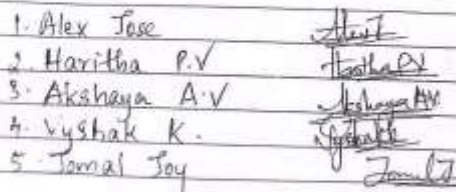 1. Alex Jose Alex J
2. Haritha P.V Haritha PV
3. Akshaya A.V Akshaya AV
4. Vyshak K. Vyshak K
5. Jomal Joy Jomal J